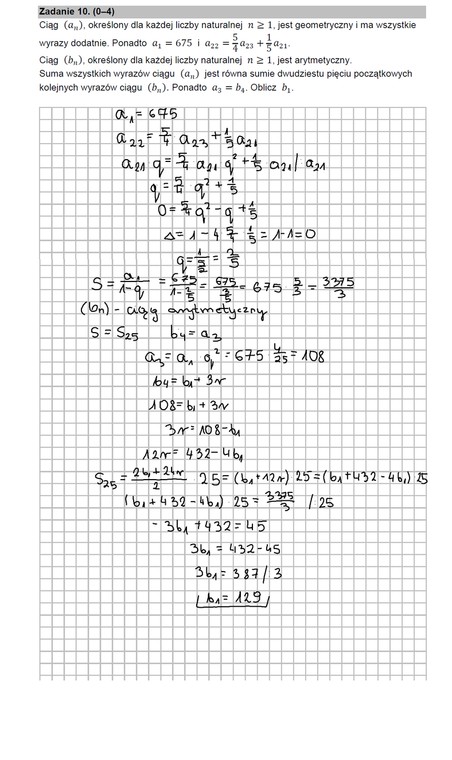 Zadanie 10. (0–4)
Ciąg (aₙ), określony dla każdej liczby naturalnej n ≥ 1, jest geometryczny i ma wszystkie
wyrazy dodatnie. Ponadto a₁ = 675 i a₂₂ = 5/4 a₂₃ + 1/5 a₂₁.
Ciąg (bₙ), określony dla każdej liczby naturalnej n ≥ 1, jest arytmetyczny.
Suma wszystkich wyrazów ciągu (aₙ) jest równa sumie dwudziestu pięciu początkowych
kolejnych wyrazów ciągu (bₙ). Ponadto a₃ = b₄. Oblicz b₁.
a₁ = 675
a₂₂ = 5/4 a₂₃ + 1/5 a₂₁
a₂₁ q = 5/4 a₂₁ q² + 1/5 a₂₁ / a₂₁
q = 5/4 q² + 1/5
0 = 5/4 q² - q + 1/5
Δ = 1 - 4 5/4 1/5 = 1-1=0
q = 1/(5/2) = 2/5
S = a₁/(1-q) = 675/(1-2/5) = 675/(3/5) = 675 5/3 = 3375/3
(bₙ) - ciąg arytmetyczny
S = S₂₅ b₄ = a₃
a₃ = a₁ q² = 675 4/25 = 108
b₄ = b₁ + 3r
108 = b₁ + 3r
3r = 108 - b₁
12r = 432 - 4b₁
S₂₅ = (2b₁ + 24r)/2 25 = (b₁ + 12r) 25 = (b₁ + 432 - 4b₁) 25
(b₁ + 432 - 4b₁) 25 = 3375/3 / 25
- 3b₁ + 432 = 45
3b₁ = 432 - 45
3b₁ = 387 / 3
b₁ = 129